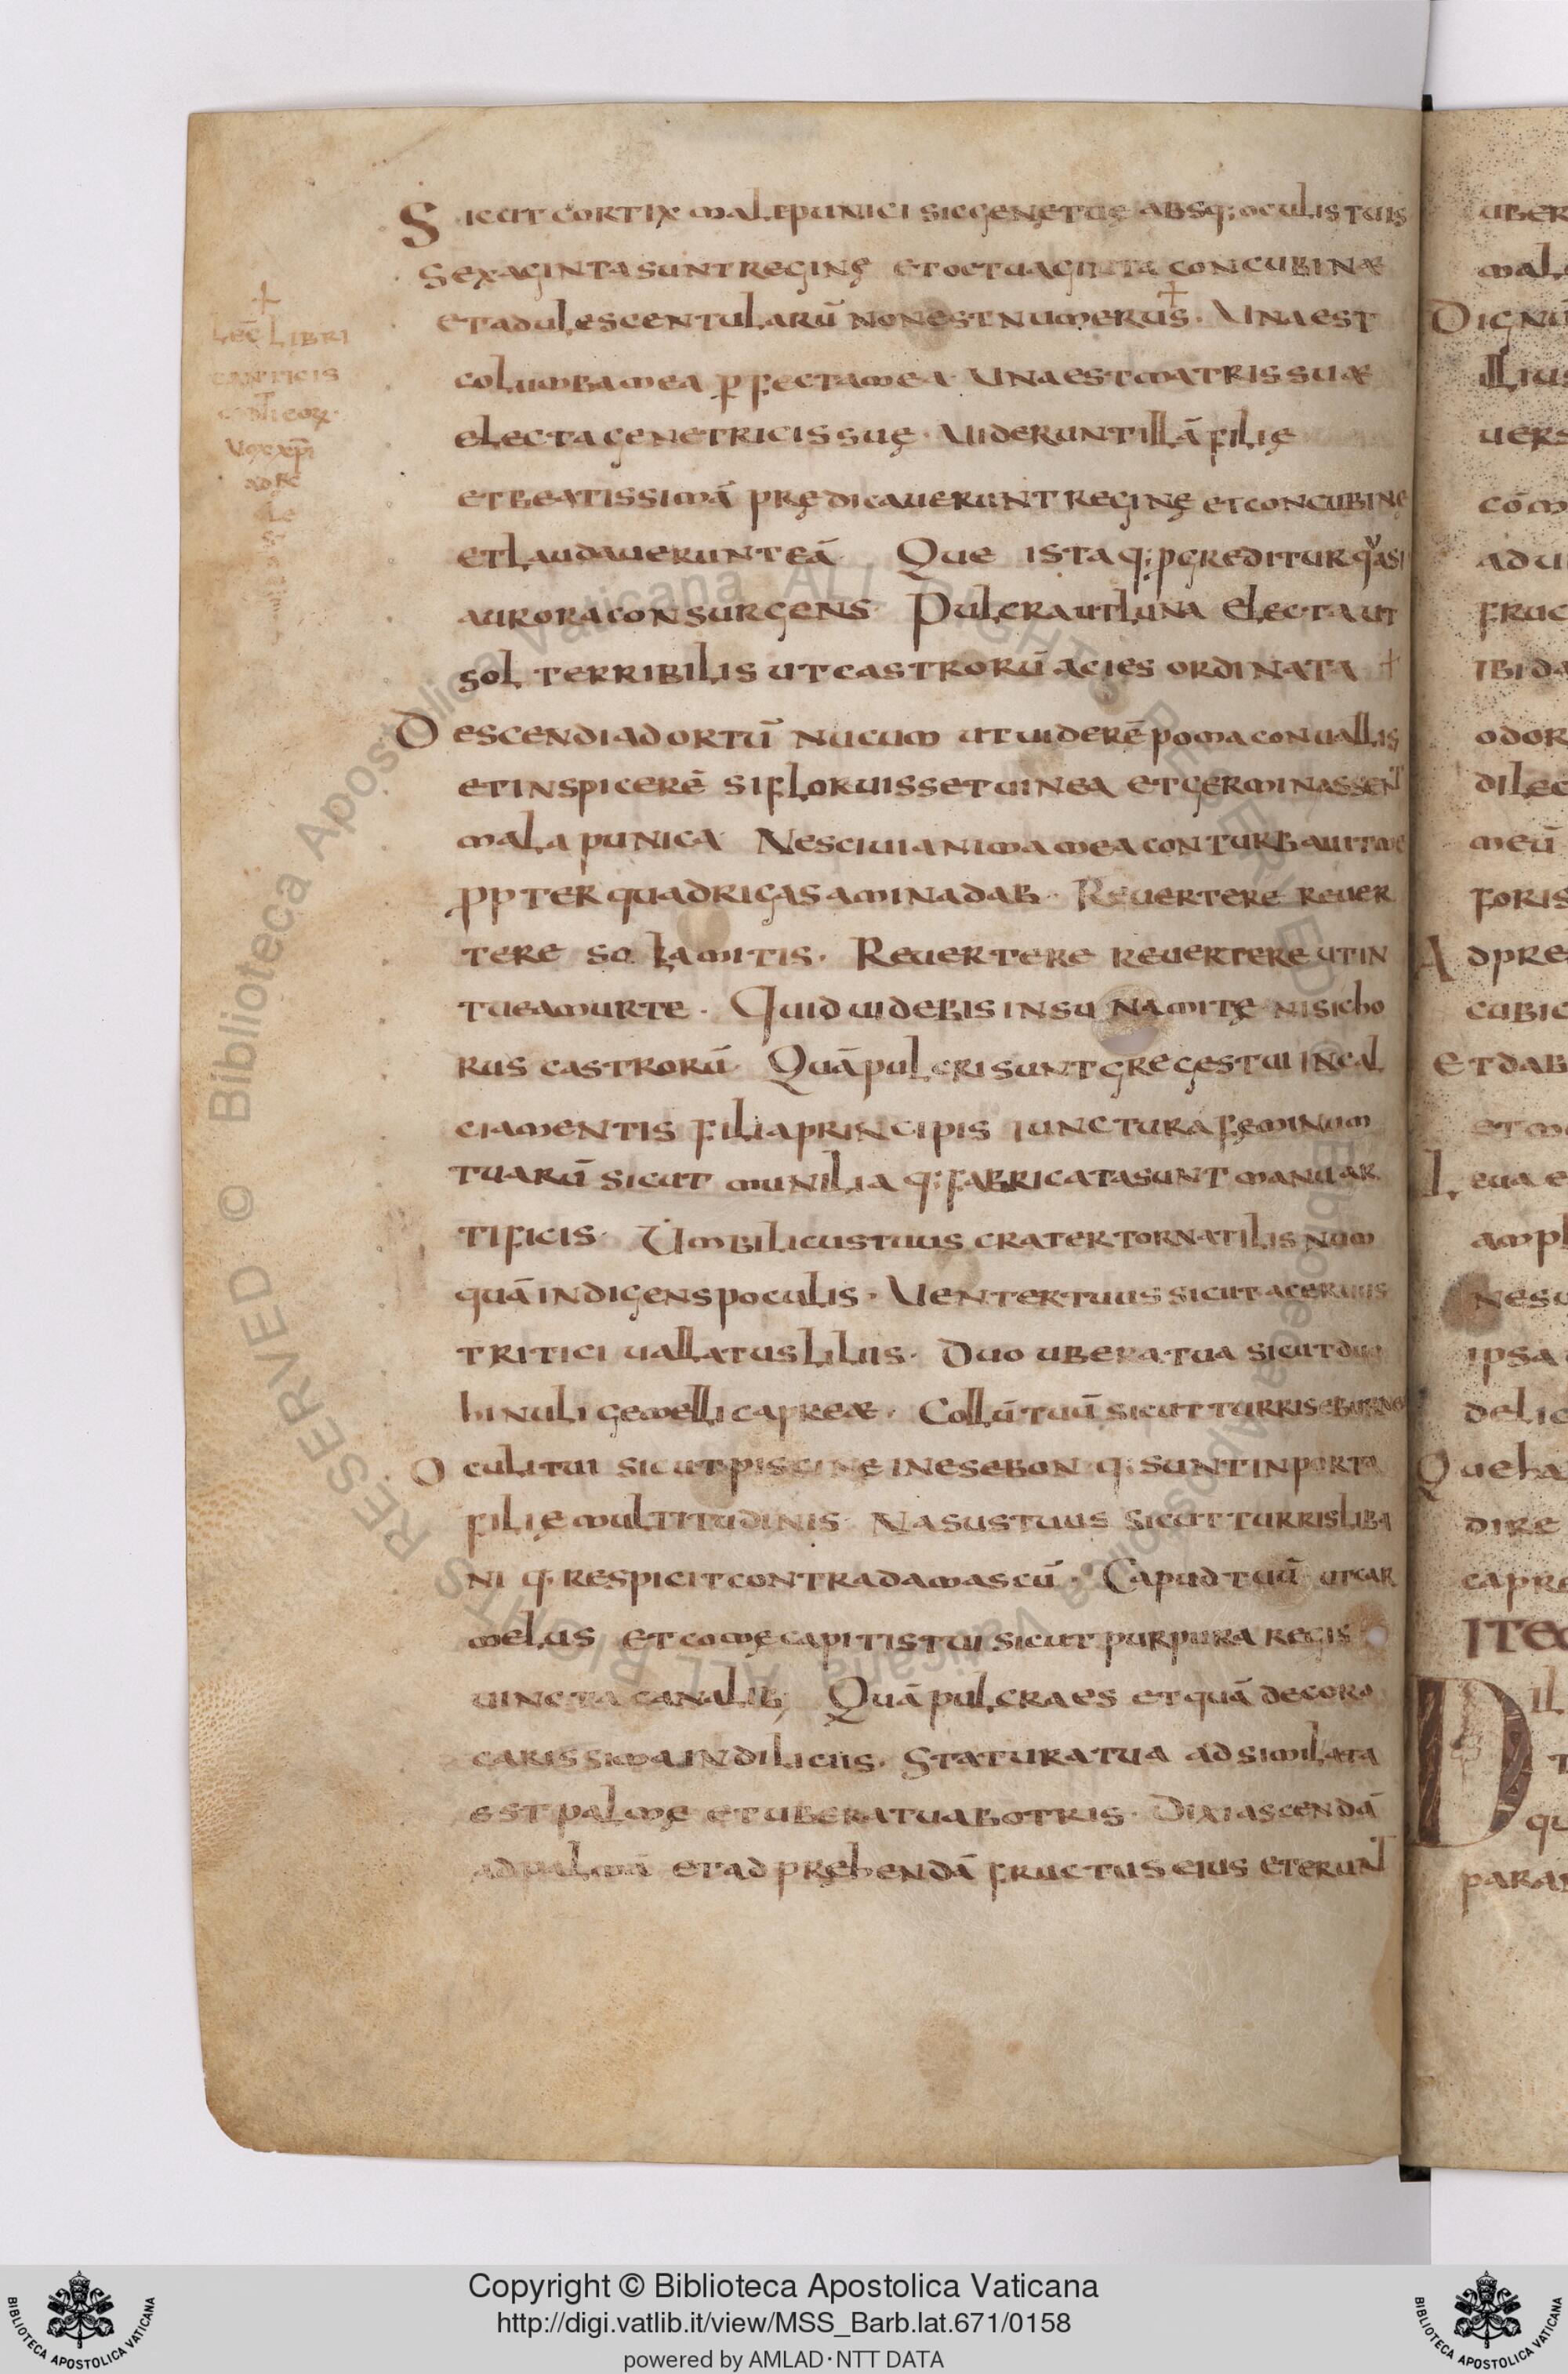 Sicut cortix male punici sic genę tuę absq; oculis tuis
Sexaginta sunt reginę et octuaginta concubinæ
et adulescentularū non est numerus · Una est
columba mea ꝑfecta mea · Una est matris suæ
electa genetricis suę · Uiderunt illā filię
et beatissimā prędicauerunt reginę et concubinę
et laudauerunt eā Que ista q; pgreditur quasi
aurora consurgens · Pulcra ut luna electa ut
sol terribilis ut castrorū acies ordinata
Descendi ad ortū nucum ut uiderē poma conuallis
et inspicerē si floruisset uinea et germinassent
mala punica · Nesciui anima mea conturbauit me
ppter quadrigas aminadab · Reuertere reuer
tere solamitis · Reuertere reuertere ut in
tueamur te · Quid uidebis in sunamitę nisi cho
rus castrorū · Quā pulcri sunt gregestui in cal
ciamentis filia principis iunctura feminum
tuarū sicut munilia q; fabricata sunt manu ar
tificis · Umbilicus tuus crater tornatilis num
quā indigens poculis · Uenter tuus sicut aceruus
tritici uallatus liliis · Duo ubera tua sicut duo
hinuli gemelli capreæ · Collū tuū sicut turris eburnea
Oculi tui sicut piscinę in esebon q; sunt in porta
filię multitudinis · Nasus tuus sicut turris liba
ni q· respicit contra damascū · Capud tuū ut car
melus et comę capitis tui sicut purpura regis
uincta canalib; Quā pulcra es et quā decora
carissima in diliciis · Statura tua adsimilata
est palmę et ubera tua botris · Dixi ascendā
ad palmā et adprehendā fructus eius et erunt
Lec̄ Libri
canticis
Uox xp̄i
uber
mal
Dignu
uers
cōm
adu
fruc
ibi da
odor
dilec
meū
foris
Adpre
cubic
et dab
et m
Leua e
ampl
nesu
ipsa
delic
Que ha
dire
capre
Ite
Dil
t
qu
para
Copyright © Biblioteca Apostolica Vaticana
http://digi.vatlib.it/view/MSS_Barb.lat.671/0158
powered by AMLAD·NTT DATA
BIBLIOTECA APOSTOLICA VATICANA
BIBLIOTECA APOSTOLICA VATICANA